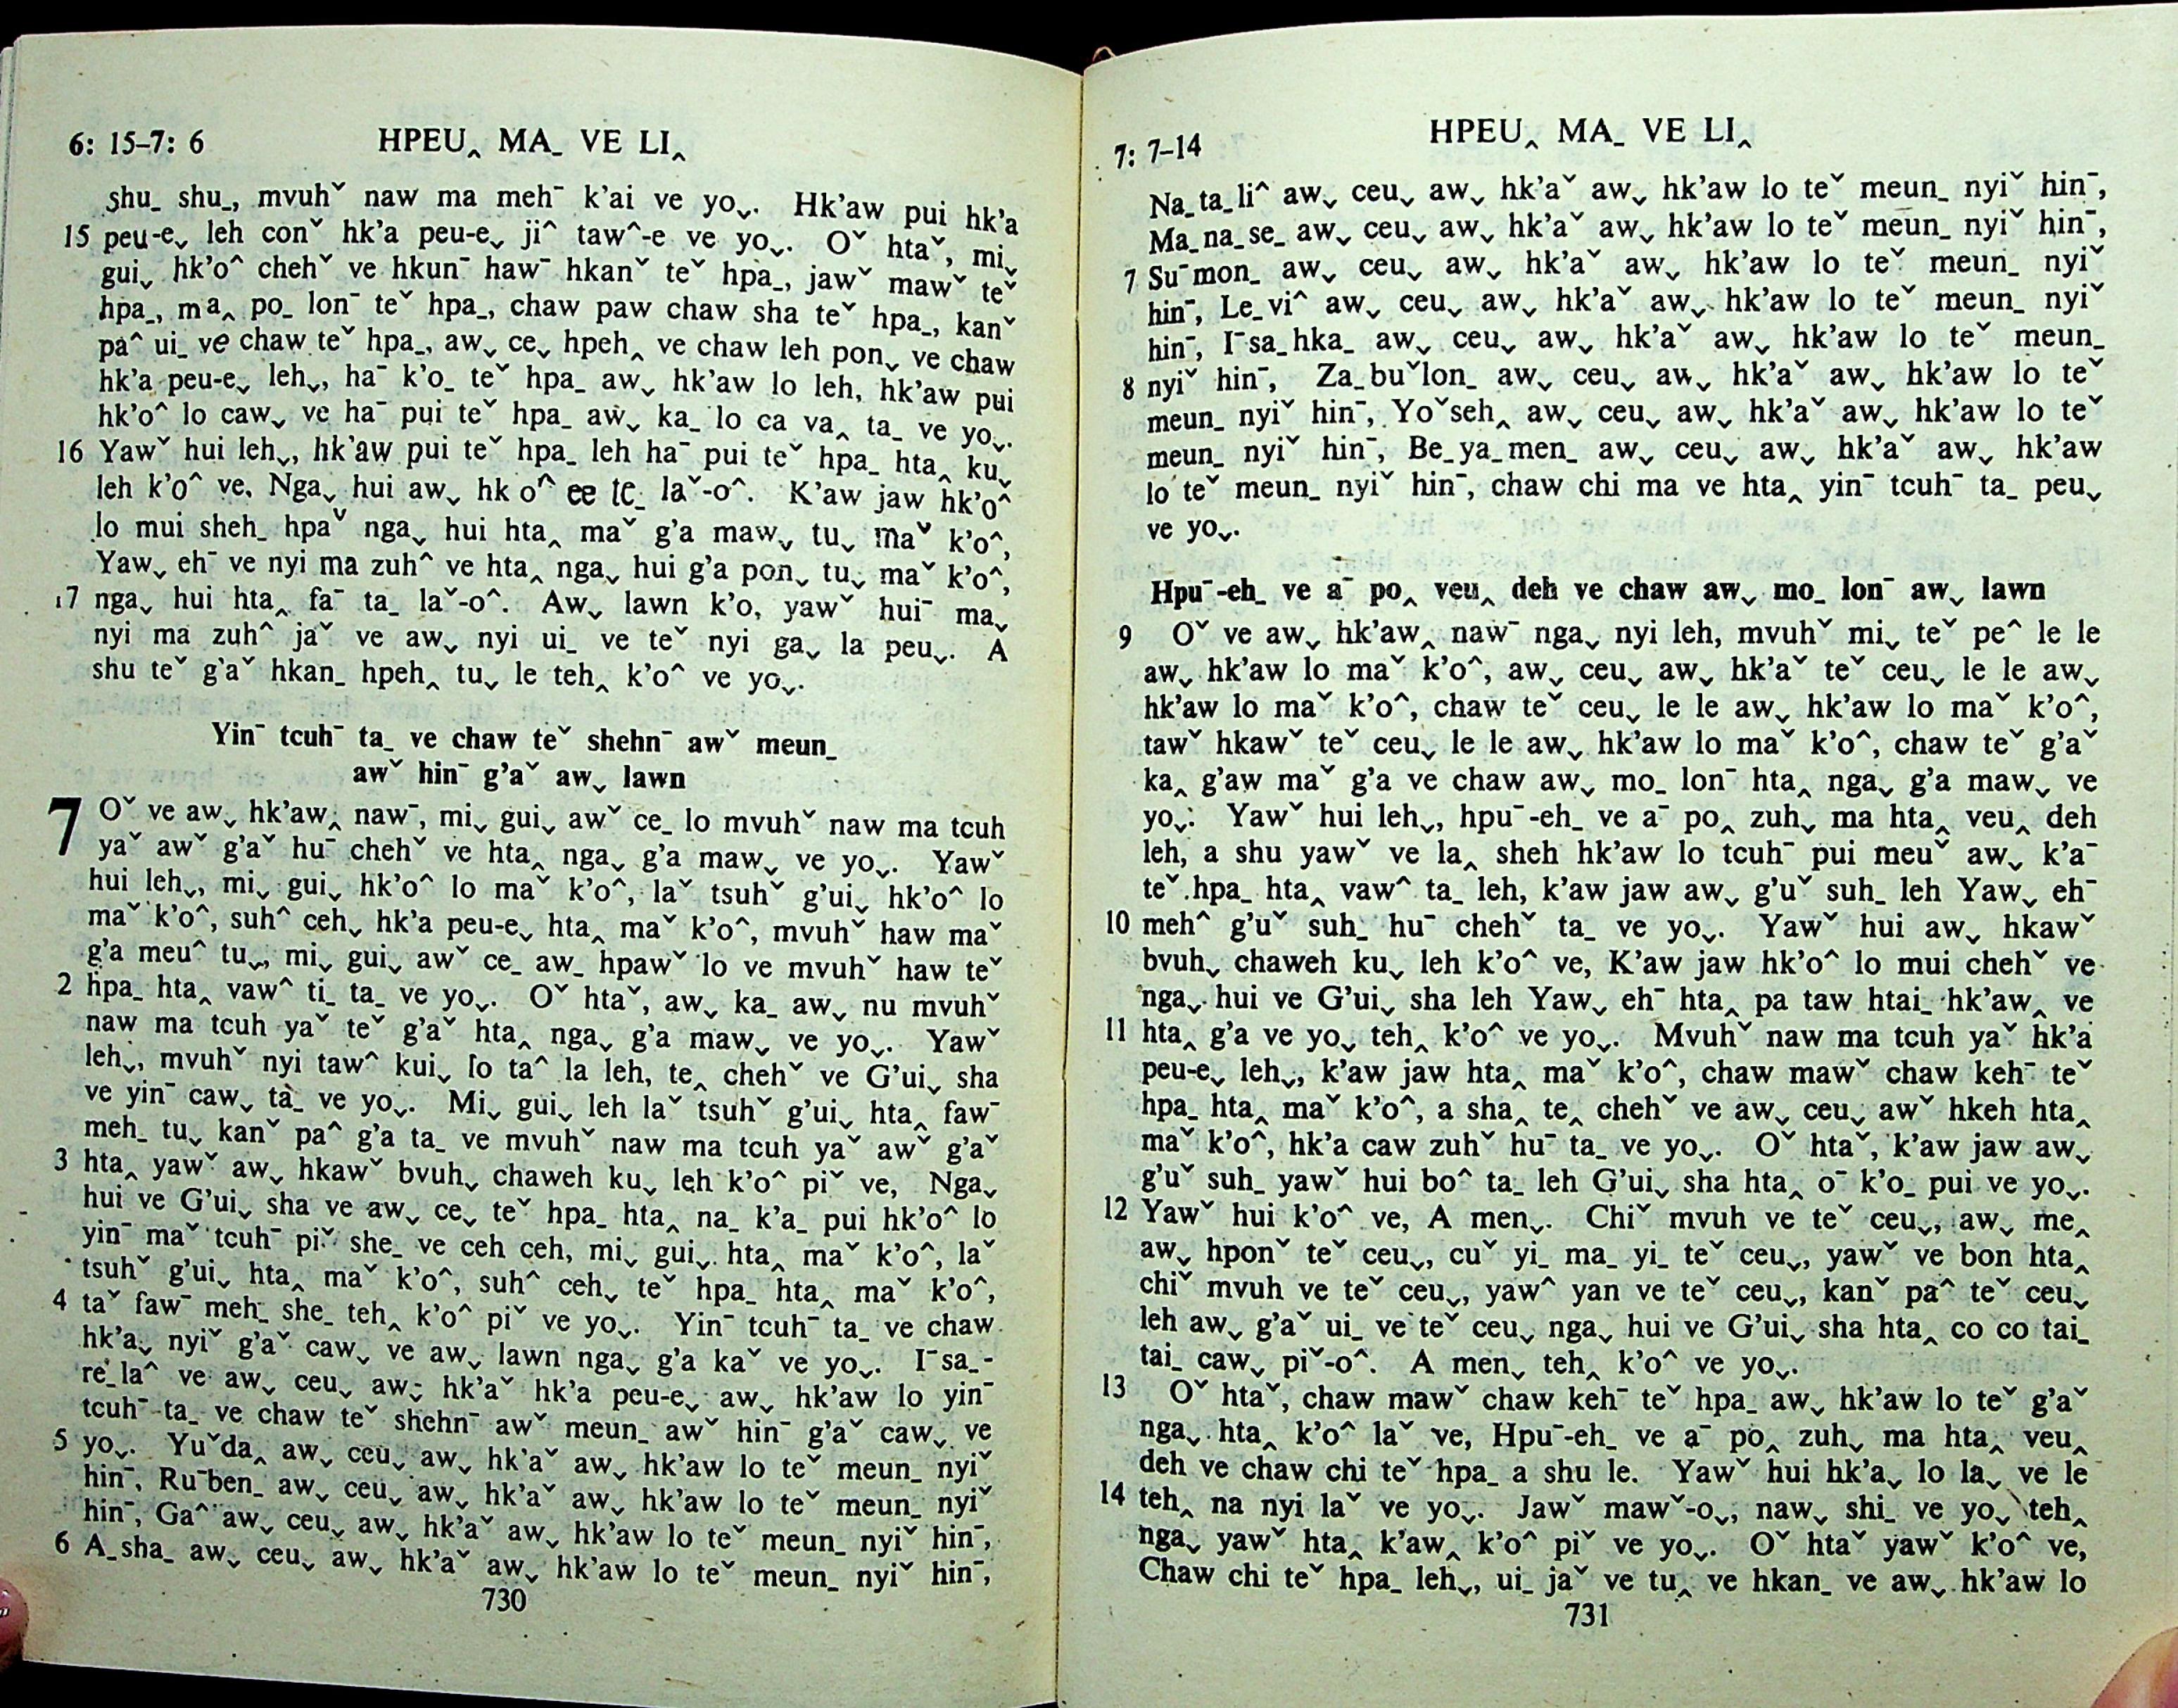 6: 15–7: 6 HPEU‸ MA_ VE LI‸
shu_ shu_, mvuhˇ naw ma meh¯ k’ai ve yoˬ. Hk’aw pui hk’a
15 peu-eˬ leh conˇ hk’a peu-eˬ ji^ taw^-e ve yoˬ. Oˇ htaˇ, miˬ
guiˬ hk’o^ chehˇ ve hkun¯ haw¯ hkanˇ teˇ hpa_, jawˇ mawˇ teˇ
hpa_, ma‸ po_ lon¯ teˇ hpa_, chaw paw chaw sha teˇ hpa_, kanˇ
pa^ ui_ ve chaw teˇ hpa_, awˬ ceˬ hpeh‸ ve chaw leh ponˬ ve chaw
hk’a peu-eˬ lehˬ, ha¯ k’o_ teˇ hpa_ awˬ hk’aw lo leh, hk’aw pui
hk’o^ lo cawˬ ve ha¯ pui teˇ hpa_ awˬ ka_ lo ca va‸ ta_ ve yoˬ.
16 Yawˇ hui lehˬ, hk’aw pui teˇ hpa_ leh ha¯ pui teˇ hpa_ hta‸ kuˬ
leh k’o^ ve, Ngaˬ hui awˬ hk o^ ee te_ laˇ-o^. K’aw jaw hk’o^
lo mui sheh_ hpaˇ ngaˬ hui hta‸ maˇ g’a mawˬ tuˬ maˇ k’o^,
Yawˬ eh¯ ve nyi ma zuh^ ve hta‸ ngaˬ hui g’a ponˬ tuˬ maˇ k’o^,
17 ngaˬ hui hta‸ fa¯ ta_ laˇ-o^. Awˬ lawn k’o, yawˇ hui¯ maˬ
nyi ma zuh^ jaˇ ve awˬ nyi ui_ ve teˇ nyi gaˬ la peuˬ. A
shu teˇ g’aˇ hkan_ hpeh‸ tuˬ le teh‸ k’o^ ve yoˬ.
Yin¯ tcuh¯ ta_ ve chaw teˇ shehn¯ awˇ meun_
awˇ hin¯ g’aˇ awˬ lawn
7 Oˇ ve awˬ hk’aw‸ naw¯, miˬ guiˬ awˇ ce_ lo mvuhˇ naw ma tcuh
yaˇ awˇ g’aˇ hu¯ chehˇ ve hta‸ ngaˬ g’a mawˬ ve yoˬ. Yawˇ
hui lehˬ, miˬ guiˬ hk’o^ lo maˇ k’o^, laˇ tsuhˇ g’uiˬ hk’o^ lo
maˇ k’o^, suh^ cehˬ hk’a peu-eˬ hta‸ maˇ k’o^, mvuhˇ haw maˇ
g’a meu^ tuˬ, miˬ guiˬ awˇ ce_ aw_ hpawˇ lo ve mvuhˇ haw teˇ
2 hpa_ hta‸ vaw^ ti_ ta_ ve yoˬ. Oˇ htaˇ, awˬ ka_ awˬ nu mvuhˇ
naw ma tcuh yaˇ teˇ g’aˇ hta‸ ngaˬ g’a mawˬ ve yoˬ. Yawˇ
lehˬ, mvuhˇ nyi taw^ kuiˬ lo ta^ la leh, te‸ chehˇ ve G’uiˬ sha
ve yin¯ cawˬ ta_ ve yoˬ. Miˬ guiˬ leh laˇ tsuhˇ g’uiˬ hta‸ faw¯
meh_ tuˬ kanˇ pa^ g’a ta_ ve mvuhˇ naw ma tcuh yaˇ awˇ g’aˇ
3 hta‸ yawˇ awˬ hkawˇ bvuhˬ chaweh kuˬ leh k’o^ piˇ ve, Ngaˬ
hui ve G’uiˬ sha ve awˬ ceˬ teˇ hpa_ hta‸ na_ k’a_ pui hk’o^ lo
yin¯ maˇ tcuh¯ piˇ she_ ve ceh ceh, miˬ guiˬ hta‸ maˇ k’o^, laˇ
tsuhˇ g’uiˬ hta‸ maˇ k’o^, suh^ cehˬ teˇ hpa_ hta‸ maˇ k’o^,
4 taˇ faw¯ meh_ she_ teh‸ k’o^ piˇ ve yoˬ. Yin¯ tcuh¯ ta_ ve chaw
hk’aˬ nyiˇ g’aˇ cawˬ ve awˬ lawn ngaˬ g’a kaˇ ve yoˬ. I¯sa_-
re_la^ ve awˬ ceuˬ awˬ hk’aˇ hk’a peu-eˬ awˬ hk’aw lo yin¯
tcuh¯ ta_ ve chaw teˇ shehn¯ awˇ meun_ awˇ hin¯ g’aˇ cawˬ ve
5 yoˬ. Yuˇda‸ awˬ ceuˬ awˬ hk’aˇ awˬ hk’aw lo teˇ meun_ nyiˇ
hin¯, Ru¯ben_ awˬ ceuˬ awˬ hk’aˇ awˬ hk’aw lo teˇ meun_ nyiˇ
hin¯, Ga^ awˬ ceuˬ awˬ hk’aˇ awˬ hk’aw lo teˇ meun_ nyiˇ hin¯,
6 A_sha_ awˬ ceuˬ awˬ hk’aˇ awˬ hk’aw lo teˇ meun_ nyiˇ hin¯,
730
7: 7–14 HPEU‸ MA_ VE LI‸
Na_ta_li^ awˬ ceuˬ awˬ hk’aˇ awˬ hk’aw lo teˇ meun_ nyiˇ hin¯,
Ma_na_se_ awˬ ceuˬ awˬ hk’aˇ awˬ hk’aw lo teˇ meun_ nyiˇ hin¯,
7 Su¯mon_ awˬ ceuˬ awˬ hk’aˇ awˬ hk’aw lo teˇ meun_ nyiˇ
hin¯, Le_vi^ awˬ ceuˬ awˬ hk’aˇ awˬ hk’aw lo teˇ meun_ nyiˇ
hin¯, I¯sa_hka_ awˬ ceuˬ awˬ hk’aˇ awˬ hk’aw lo teˇ meun_
8 nyiˇ hin¯, Za_buˇlon_ awˬ ceuˬ awˬ hk’aˇ awˬ hk’aw lo teˇ
meun_ nyiˇ hin¯, Yoˇseh‸ awˬ ceuˬ awˬ hk’aˇ awˬ hk’aw lo teˇ
meun_ nyiˇ hin¯, Be_ya_men_ awˬ ceuˬ awˬ hk’aˇ awˬ hk’aw
lo teˇ meun_ nyiˇ hin¯, chaw chi ma ve hta‸ yin¯ tcuh¯ ta_ peuˬ
ve yoˬ.
Hpu¯-eh_ ve a¯ po‸ veu‸ deh ve chaw awˬ mo_ lon¯ awˬ lawn
9 Oˇ ve awˬ hk’aw‸ naw¯ ngaˬ nyi leh, mvuhˇ miˬ teˇ pe^ le le
awˬ hk’aw lo maˇ k’o^, awˬ ceuˬ awˬ hk’aˇ teˇ ceuˬ le le awˬ
hk’aw lo maˇ k’o^, chaw teˇ ceuˬ le le awˬ hk’aw lo maˇ k’o^,
tawˇ hkawˇ teˇ ceuˬ le le awˬ hk’aw lo maˇ k’o^, chaw teˇ g’aˇ
ka‸ g’aw maˇ g’a ve chaw awˬ mo_ lon¯ hta‸ ngaˬ g’a mawˬ ve
yoˬ: Yawˇ hui lehˬ, hpu¯-eh_ ve a¯ po‸ zuhˬ ma hta‸ veu‸ deh
leh, a shu yawˇ ve la‸ sheh hk’aw lo tcuh¯ pui meuˇ awˬ k’a¯
teˇ hpa_ hta‸ vaw^ ta_ leh, k’aw jaw awˬ g’uˇ suh_ leh Yawˬ eh¯
10 meh^ g’uˇ suh_ hu¯ chehˇ ta_ ve yoˬ. Yawˇ hui awˬ hkawˇ
bvuhˬ chaweh kuˬ leh k’o^ ve, K’aw jaw hk’o^ lo mui chehˇ ve
ngaˬ hui ve G’uiˬ sha leh Yawˬ eh¯ hta‸ pa taw htai_ hk’aw‸ ve
11 hta‸ g’a ve yoˬ teh‸ k’o^ ve yoˬ. Mvuhˇ naw ma tcuh yaˇ hk’a
peu-eˬ lehˬ, k’aw jaw hta‸ maˇ k’o^, chaw mawˇ chaw keh¯ teˇ
hpa_ hta‸ maˇ k’o^, a sha‸ te‸ chehˇ ve awˬ ceuˬ awˇ hkeh hta‸
maˇ k’o^, hk’a caw zuhˇ hu¯ ta_ ve yoˬ. Oˇ htaˇ, k’aw jaw awˬ
g’uˇ suh_ yawˇ hui bo^ ta_ leh G’uiˬ sha hta‸ o¯ k’o_ pui ve yoˬ.
12 Yawˇ hui k’o^ ve, A menˬ. Chiˇ mvuh ve teˇ ceuˬ, awˬ me‸
awˬ hponˇ teˇ ceuˬ, cuˇ yi_ ma_ yi_ teˇ ceuˬ, yawˇ ve bon hta‸
chiˇ mvuh ve teˇ ceuˬ, yaw^ yan ve teˇ ceuˬ, kanˇ pa^ teˇ ceuˬ
leh awˬ g’aˇ ui_ ve teˇ ceuˬ ngaˬ hui ve G’uiˬ sha hta‸ co co tai_
tai_ cawˬ piˇ-o^. A menˬ teh‸ k’o^ ve yoˬ.
13 Oˇ htaˇ, chaw mawˇ chaw keh¯ teˇ hpa_ awˬ hk’aw lo teˇ g’aˇ
ngaˬ hta‸ k’o^ laˇ ve, Hpu¯-eh_ ve a¯ po‸ zuhˬ ma hta‸ veu‸
deh ve chaw chi teˇ hpa_ a shu le. Yawˇ hui hk’aˬ lo laˬ ve le
14 teh‸ na nyi laˇ ve yoˬ. Jawˇ mawˇ-oˬ, nawˬ shi_ ve yoˬ teh‸
ngaˬ yawˇ hta‸ k’aw‸ k’o^ piˇ ve yoˬ. Oˇ htaˇ yawˇ k’o^ ve,
Chaw chi teˇ hpa_ lehˬ, ui_ jaˇ ve tu‸ ve hkan_ ve awˬ hk’aw lo
731